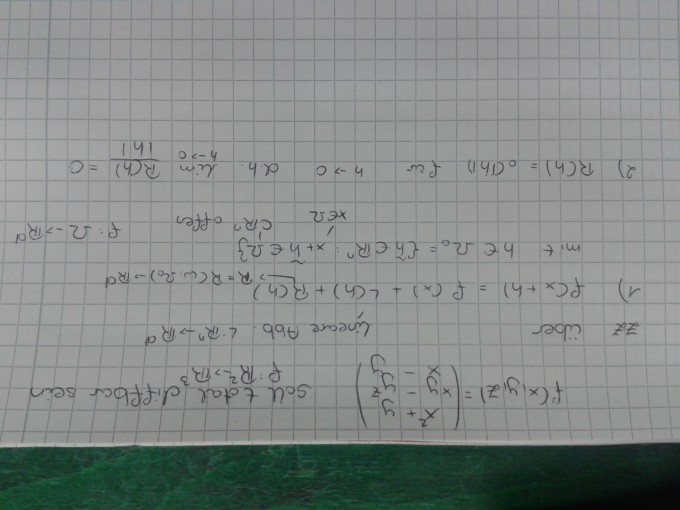 f(x,y,z) = (x² + y
xy - yz
x - y) soll total diffbar sein
f: ℝ² → ℝ³
zz über lineare Abb. L: ℝⁿ → ℝᵈ
1) f(x+h) = f(x) + L(h) + R(h)
→ R = R(ω: Ω₀) → ℝᵈ
mit h ∈ Ω₀ = {h̃ ∈ ℝⁿ: x + h̃ ∈ Ω} f: Ω → ℝᵈ
x ∈ Ω ⊂ ℝⁿ offen
2) R(h) = o(|h|) für h → 0 d.h. lim h→0 R(h)/|h| = 0